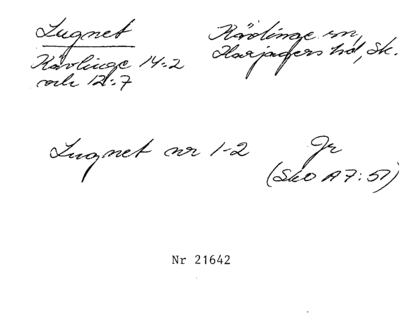 Lugnet
Kävlinge sn,
Harjagers hd, Sk.
Kävlinge 14:2
och 12:7
Lugnet nr 1-2
Jr
(SkO A7:57)
Nr 21642